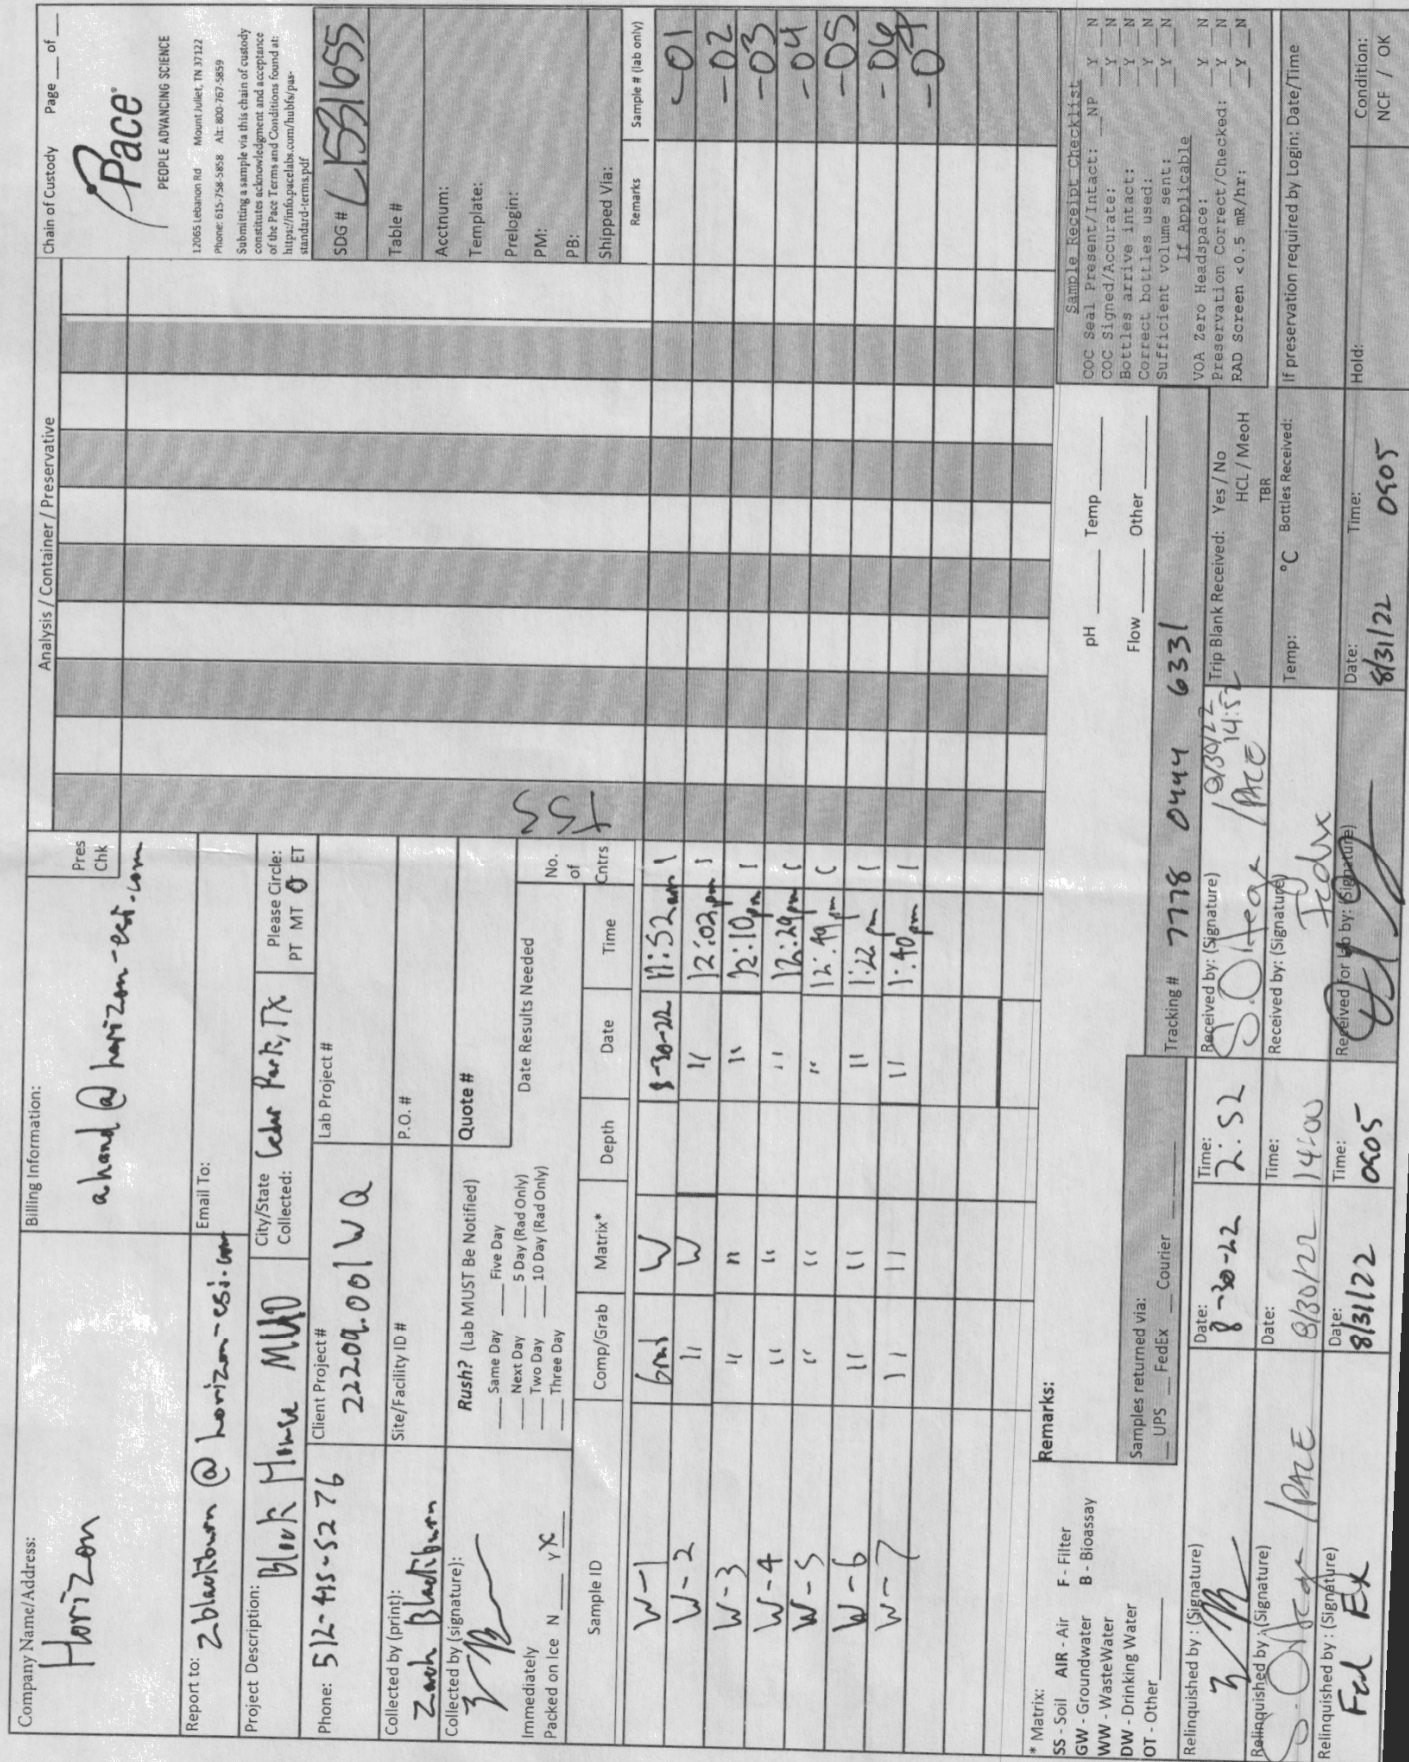 Company Name/Address:
Horizon
Billing Information:
ahand@horizon-esi.com
Pres
Chk
Analysis / Container / Preservative
Chain of Custody Page ___ of ___
Pace®
PEOPLE ADVANCING SCIENCE
12065 Lebanon Rd Mount Juliet, TN 37122
Phone: 615-758-5858 Alt: 800-767-5859
Submitting a sample via this chain of custody
constitutes acknowledgment and acceptance
of the Pace Terms and Conditions found at:
https://info.pacelabs.com/hubfs/pas-
standard-terms.pdf
Report to: zblackburn@horizon-esi.com
Email To:
Project Description: Block House MUD
City/State
Collected: Cedar Park, TX
Please Circle:
PT MT ET
Phone: 512-415-5276
Client Project #
22209.001 WQ
Lab Project #
SDG # L1531655
Table #
Collected by (print):
Zach Blackburn
Site/Facility ID #
P.O. #
Acctnum:
Template:
Prelogin:
PM:
PB:
Shipped Via:
Collected by (signature):
Rush? (Lab MUST Be Notified)
___ Same Day ___ Five Day
___ Next Day ___ 5 Day (Rad Only)
___ Two Day ___ 10 Day (Rad Only)
___ Three Day
Quote #
Date Results Needed
Immediately
Packed on Ice N ___ Y X
No.
of
Cntrs
TSS
Sample ID Comp/Grab Matrix* Depth Date Time Remarks Sample # (lab only)
W-1 Grab W 8-30-22 11:52am 1 -01
W-2 " W " 12:02pm 1 -02
W-3 " " " 12:10pm 1 -03
W-4 " " " 12:29pm 1 -04
W-5 " " " 12:49pm 1 -05
W-6 " " " 1:22pm 1 -06
W-7 " " " 1:40pm 1 -07
* Matrix:
SS - Soil AIR - Air F - Filter
GW - Groundwater B - Bioassay
WW - WasteWater
DW - Drinking Water
OT - Other
Remarks:
pH ___ Temp ___
Flow ___ Other ___
Samples returned via:
___ UPS ___ FedEx ___ Courier
Tracking # 7778 0444 6331
Sample Receipt Checklist
COC Seal Present/Intact: __NP __Y __N
COC Signed/Accurate: __Y __N
Bottles arrive intact: __Y __N
Correct bottles used: __Y __N
Sufficient volume sent: __Y __N
If Applicable
VOA Zero Headspace: __Y __N
Preservation Correct/Checked: __Y __N
RAD Screen <0.5 mR/hr: __Y __N
Relinquished by : (Signature)
Date:
8-30-22
Time:
2:52
Received by: (Signature)
8/30/22
14:52
PACE
Trip Blank Received: Yes / No
HCL / MeoH
TBR
Relinquished by : (Signature)
/PACE
Date:
8/30/22
Time:
14:00
Received by: (Signature)
Fedex
Temp: °C Bottles Received:
If preservation required by Login: Date/Time
Relinquished by : (Signature)
Fed Ex
Date:
8/31/22
Time:
0905
Received for lab by: (Signature)
Date:
8/31/22
Time:
0905
Hold:
Condition:
NCF / OK